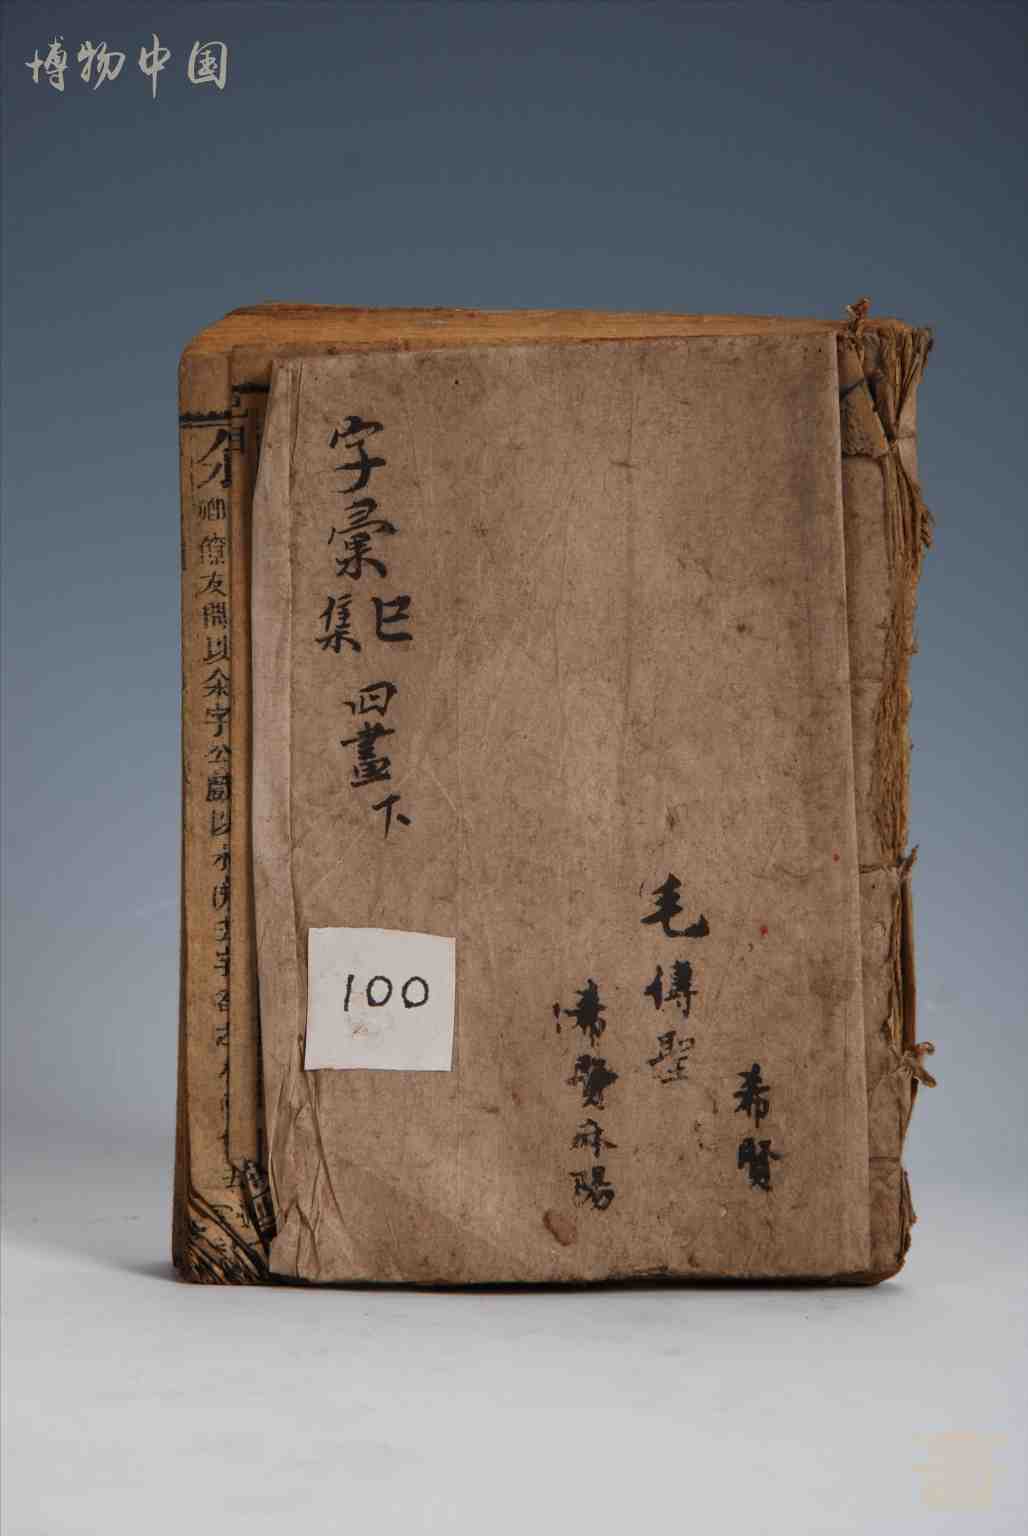 博物中国
字彙
巳集
四畫下
希賢
毛傳聖
希賢麻陽
100
友間以余字公